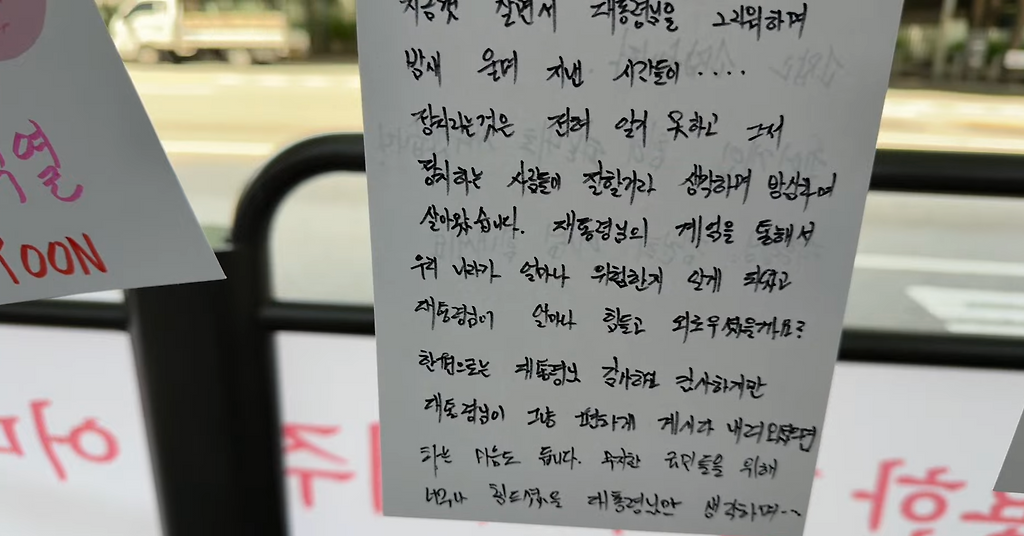 지금껏 살면서 대통령님을 그리워하며
밤새 울며 지낸 시간들이 ....
정치라는것은 전혀 알지 못하고 그저
정치하는 사람들이 잘할거라 생각하며 방심하며
살아왔습니다. 대통령님의 계엄을 통해서
우리 나라가 얼마나 위험한지 알게 되었고
대통령님이 얼마나 힘들고 외로우셨을까요?
한편으로는 대통령님 감사하고 감사하지만
대통령님이 그냥 편하게 계시다 내려오셨다면
하는 마음도 듭니다. 무지한 국민들을 위해
너무나 힘드셨을 대통령님만 생각하며..
열
YOON